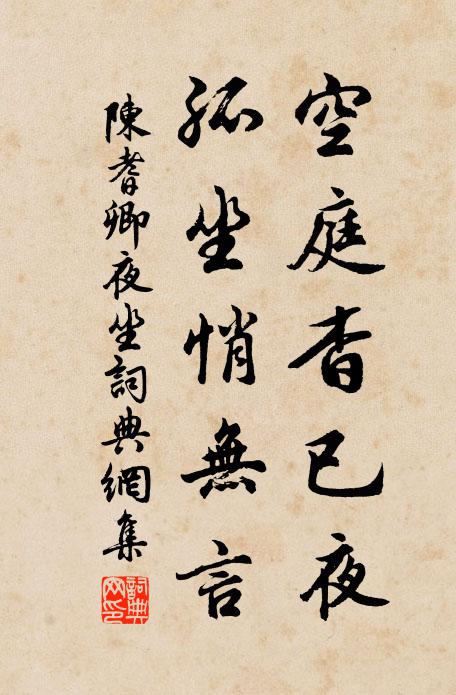 空庭杳已夜
孤坐悄無言
陳耆卿夜坐詞典網集
詞典网印